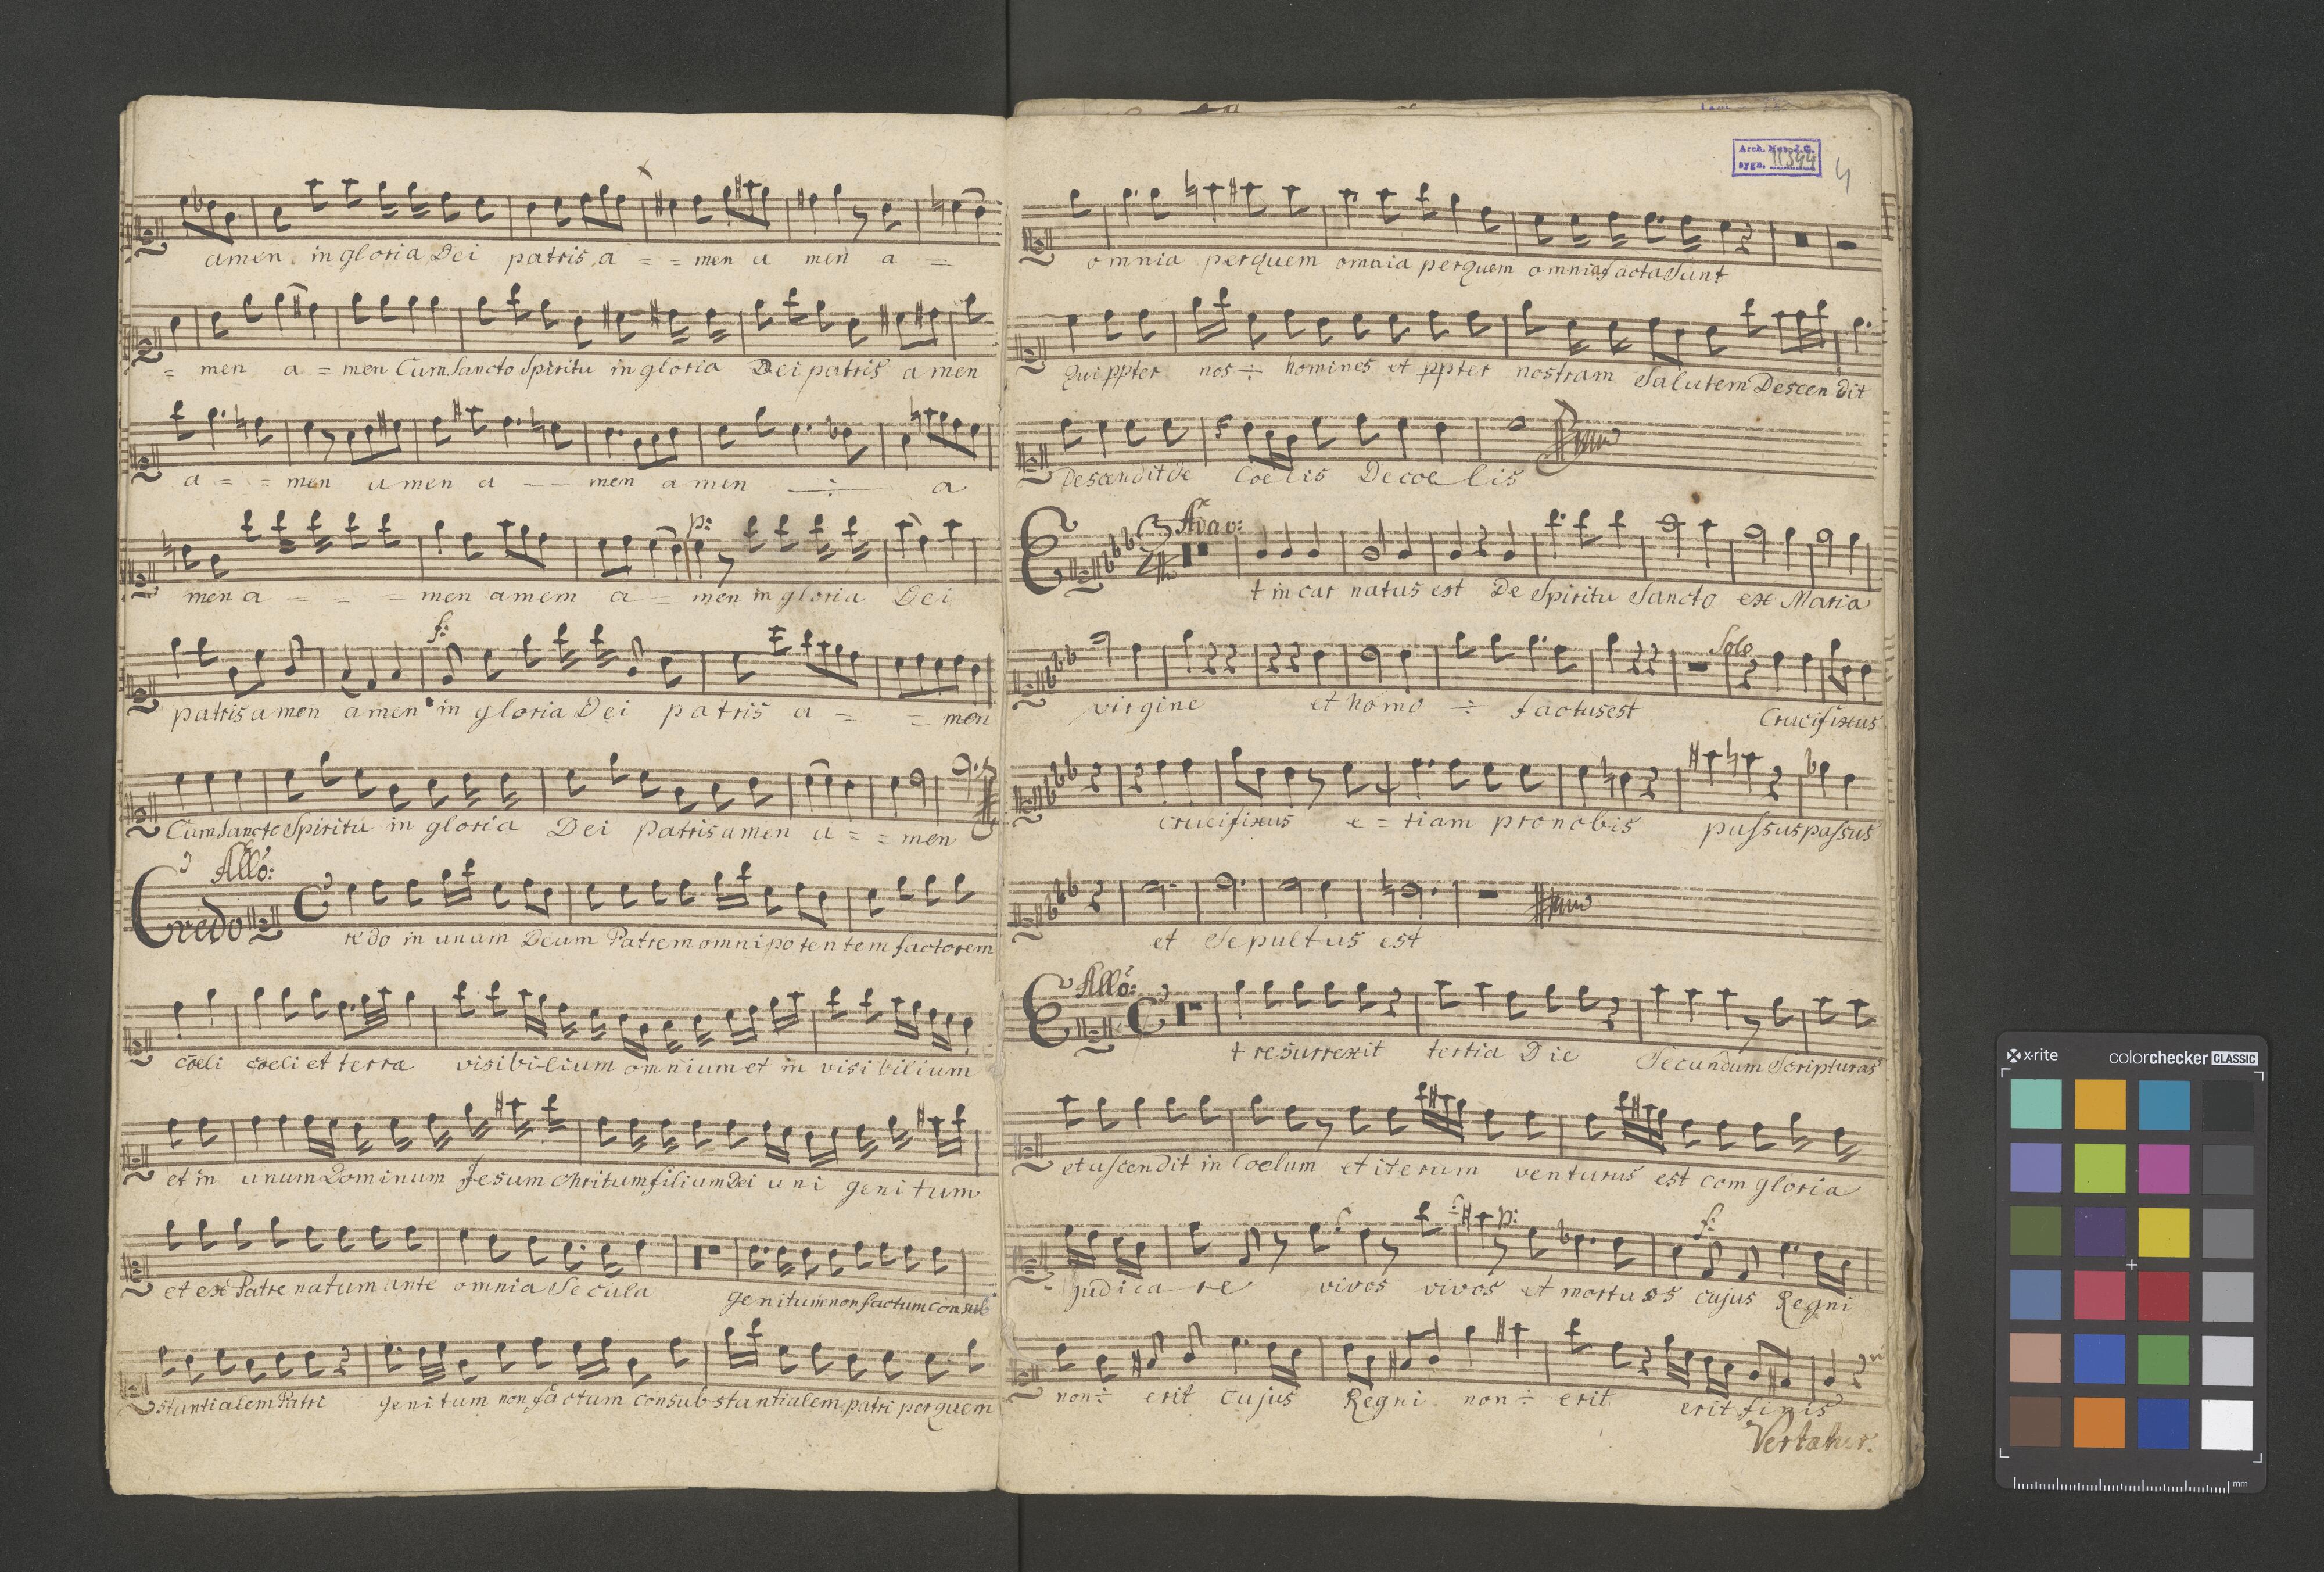 amen in gloria Dei patris a = = men a men a =
= men a = men Cum Sancto Spiritu in gloria Dei patris amen
a = = men amen a - - men amen ÷ a
p:
men a - - = men amem a = men in gloria Dei
f:
patris amen amen in gloria Dei patris a = = men
Cum Sancto Spiritu in gloria Dei Patris amen a = = men
Allo:
Credo C
redo in unum Deum Patrem omnipotentem factorem
coeli coeli et terra visibilium omnium et in visibilium
et in unum Dominum Jesum Chritum filium Dei uni genitum
et ex Patre natum ante omnia Secula genitum non factum consub
stantialem Patri genitum non factum consubstantialem patri per quem
Arch. Muz. J.G.
sygn. II 344
4
omnia per quem omnia per quem omnia facta Sunt
Qui ppter nos ÷ homines et ppter nostram Salutem Descendit
Descendit de Coelis De coelis
Adag:
E 3/4
t incarnatus est De Spiritu Sancto ex Maria
Solo
virgine et homo ÷ factus est Crucifixus
crucifixus e = tiam pro nobis passus passus
et Sepultus est
Allo:
E C
t resurrexit tertia Die Secundum Scripturas
et ascendit in Coelum et iterum venturus est com gloria
f: p: f:
judicare vivos vivos et mortuos cujus Regni
non ÷ erit cujus Regni non ÷ erit erit finis
Vertatur.
x-rite
colorchecker CLASSIC
mm